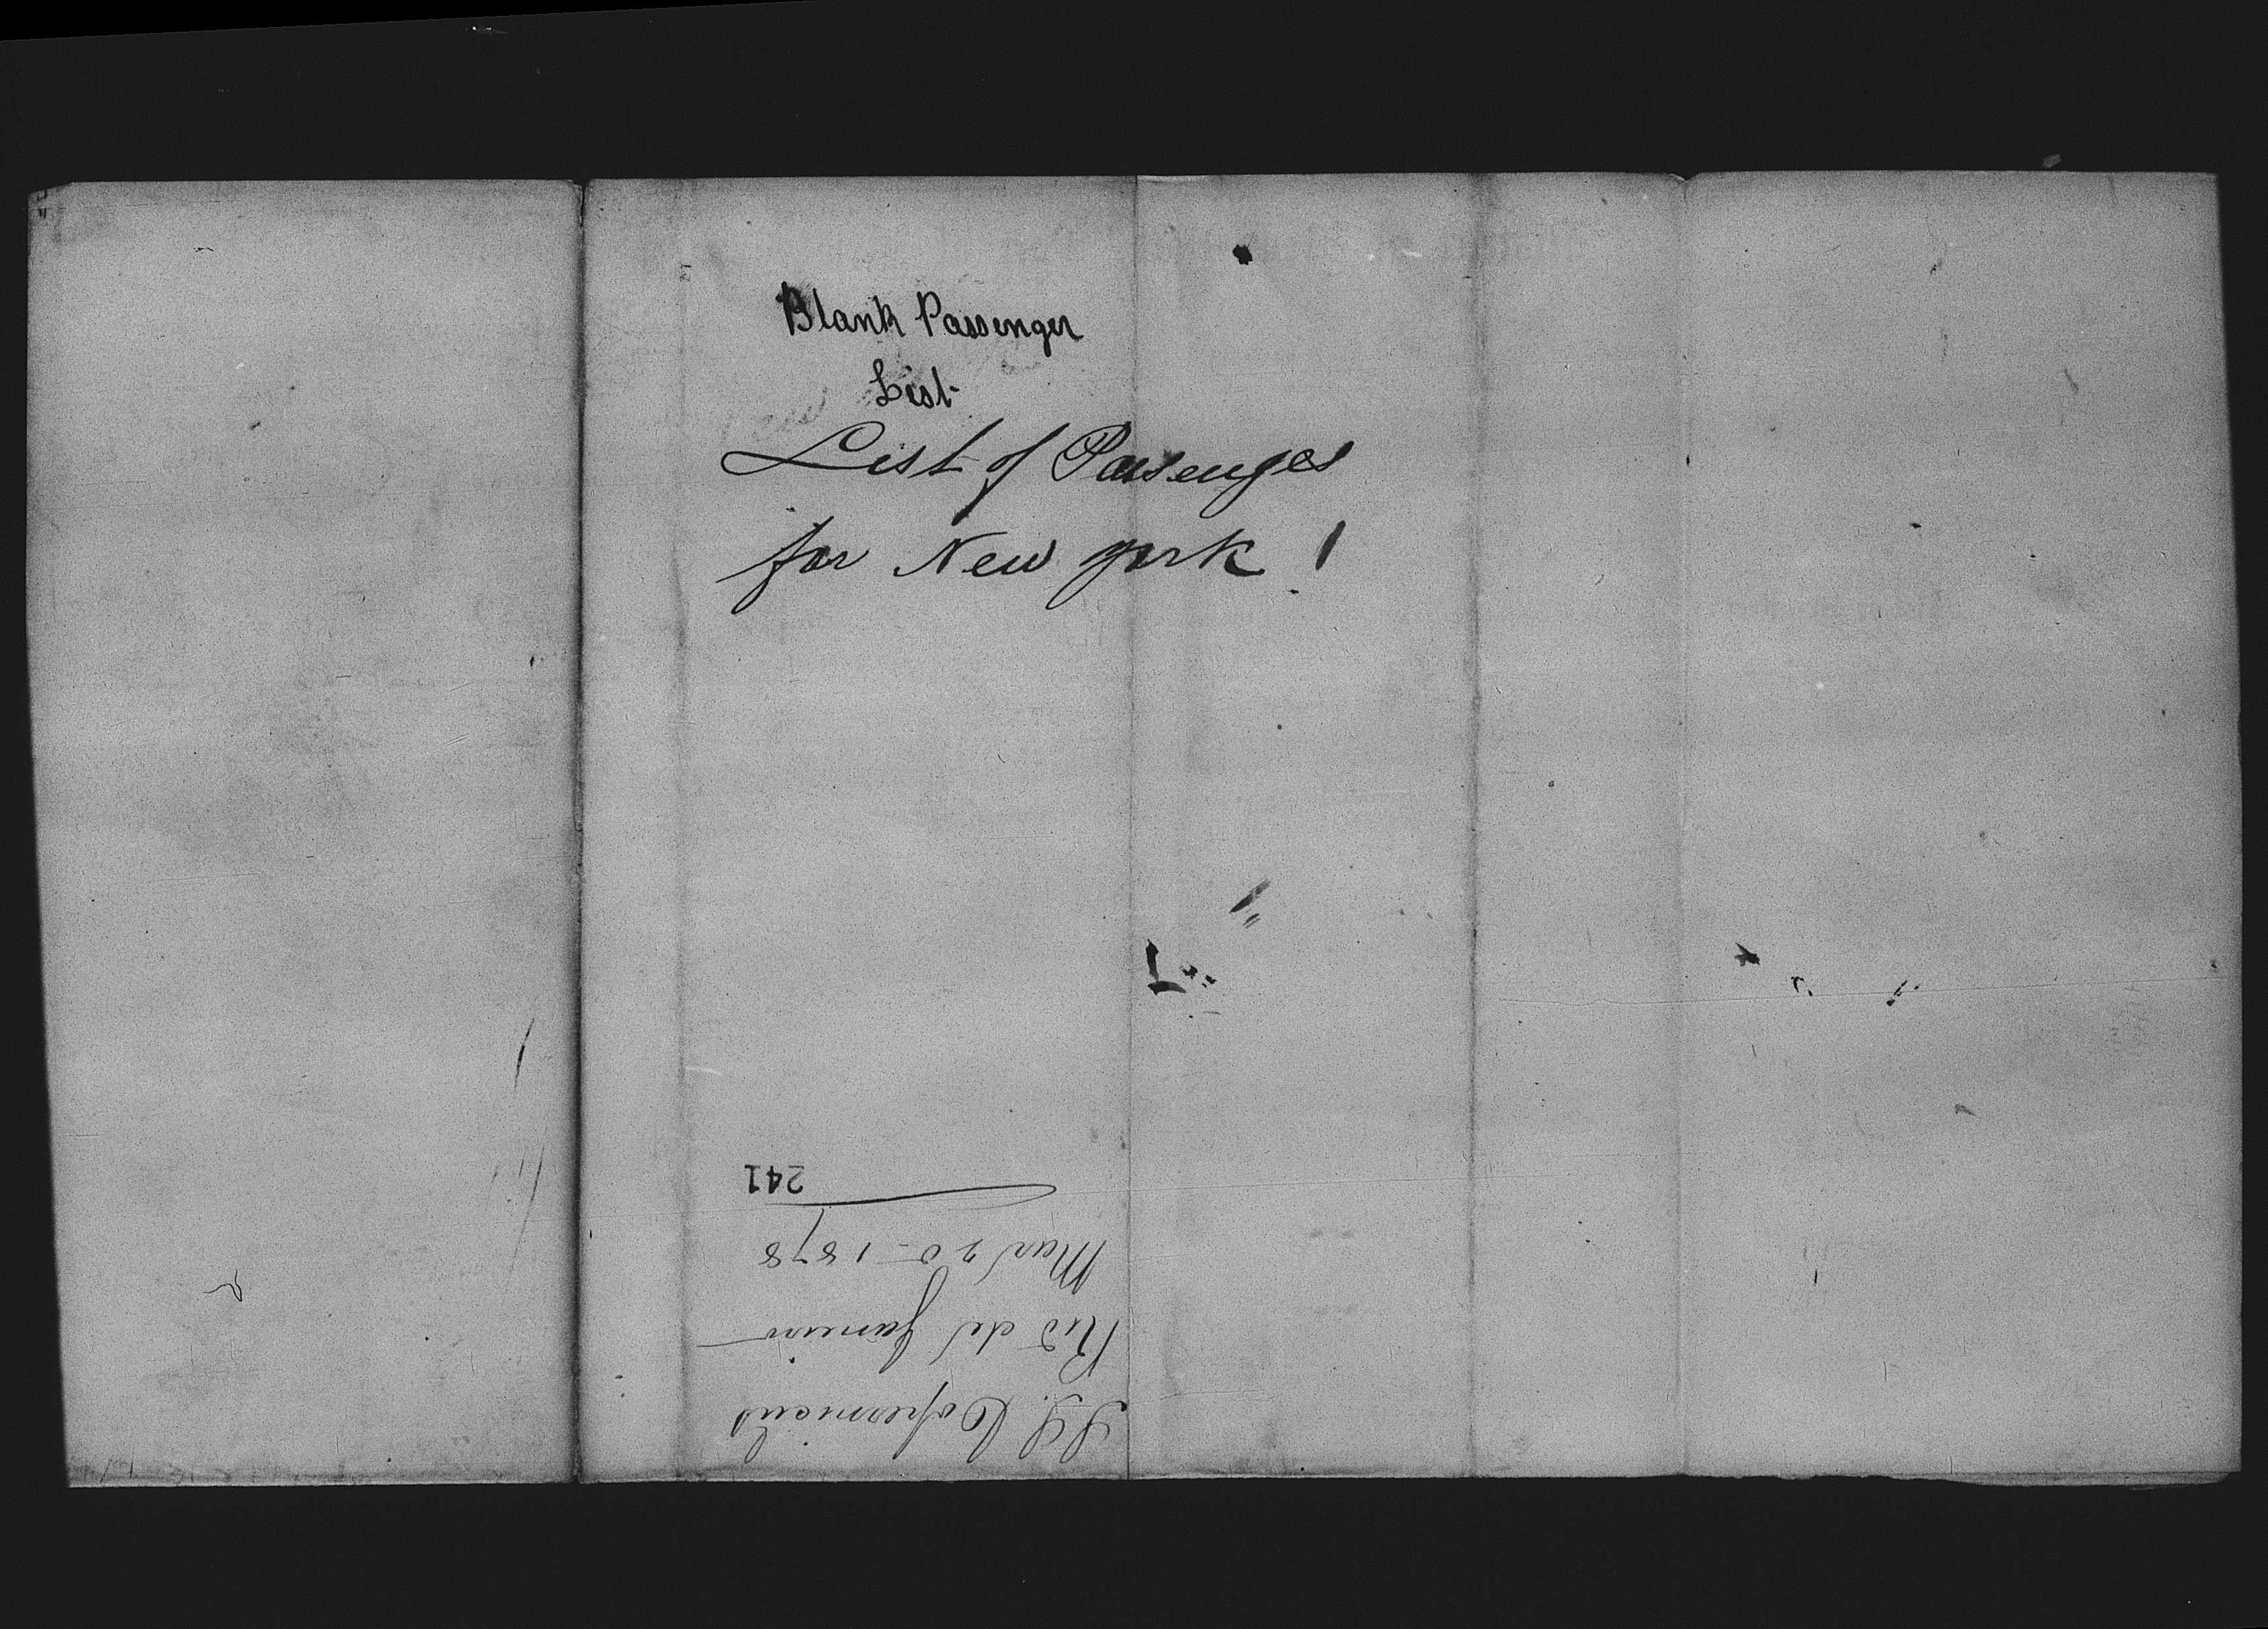 Blank Passenger
List
List of Passenges
for New york !
S.S. Copernicus
Rio de Janeiro
Mar 20 - 1878
241